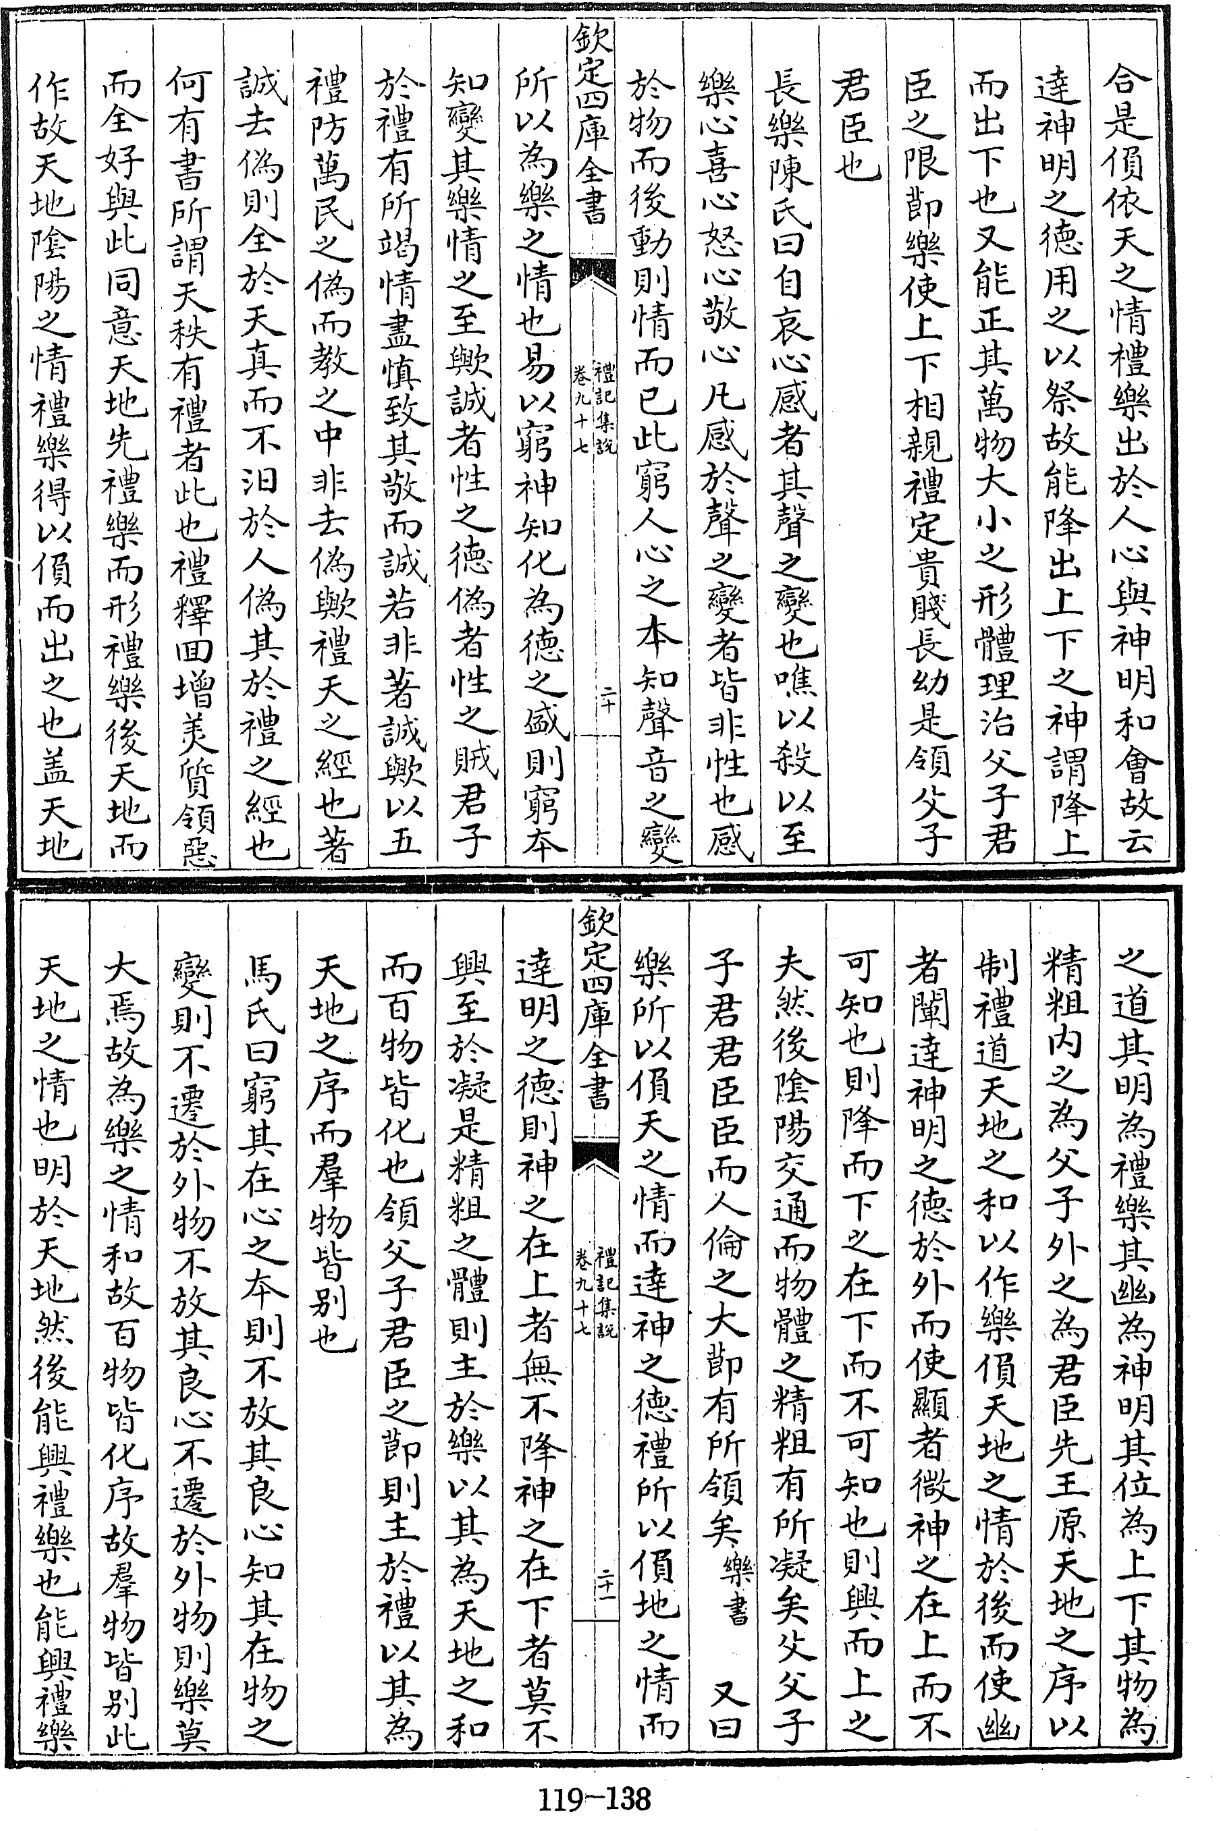 合是偩依天之情禮樂出於人心與神明和會故云
達神明之德用之以祭故能降出上下之神謂降上
而出下也又能正其萬物大小之形體理治父子君
臣之限節樂使上下相親禮定貴賤長幼是領父子
君臣也
長樂陳氏曰自哀心感者其聲之變也噍以殺以至
樂心喜心怒心敬心凡感於聲之變者皆非性也感
於物而後動則情而已此窮人心之本知聲音之變
欽定四庫全書
禮記集說
卷九十七
二十
所以為樂之情也易以窮神知化為德之盛則窮本
知變其樂情之至歟誠者性之德偽者性之賊君子
於禮有所竭情盡慎致其敬而誠若非著誠歟以五
禮防萬民之偽而教之中非去偽歟禮天之經也著
誠去偽則全於天真而不汨於人偽其於禮之經也
何有書所謂天秩有禮者此也禮釋回增美質領惡
而全好與此同意天地先禮樂而形禮樂後天地而
作故天地陰陽之情禮樂得以偩而出之也盖天地
之道其明為禮樂其幽為神明其位為上下其物為
精粗内之為父子外之為君臣先王原天地之序以
制禮道天地之和以作樂偩天地之情於後而使幽
者闡達神明之德於外而使顯者微神之在上而不
可知也則降而下之在下而不可知也則興而上之
夫然後陰陽交通而物體之精粗有所凝矣父父子
子君君臣臣而人倫之大節有所領矣樂書　又曰
樂所以偩天之情而達神之德禮所以偩地之情而
欽定四庫全書
禮記集說
卷九十七
二十一
達明之德則神之在上者無不降神之在下者莫不
興至於凝是精粗之體則主於樂以其為天地之和
而百物皆化也領父子君臣之節則主於禮以其為
天地之序而羣物皆别也
馬氏曰窮其在心之本則不放其良心知其在物之
變則不遷於外物不放其良心不遷於外物則樂莫
大焉故為樂之情和故百物皆化序故羣物皆别此
天地之情也明於天地然後能興禮樂也能興禮樂
119-138